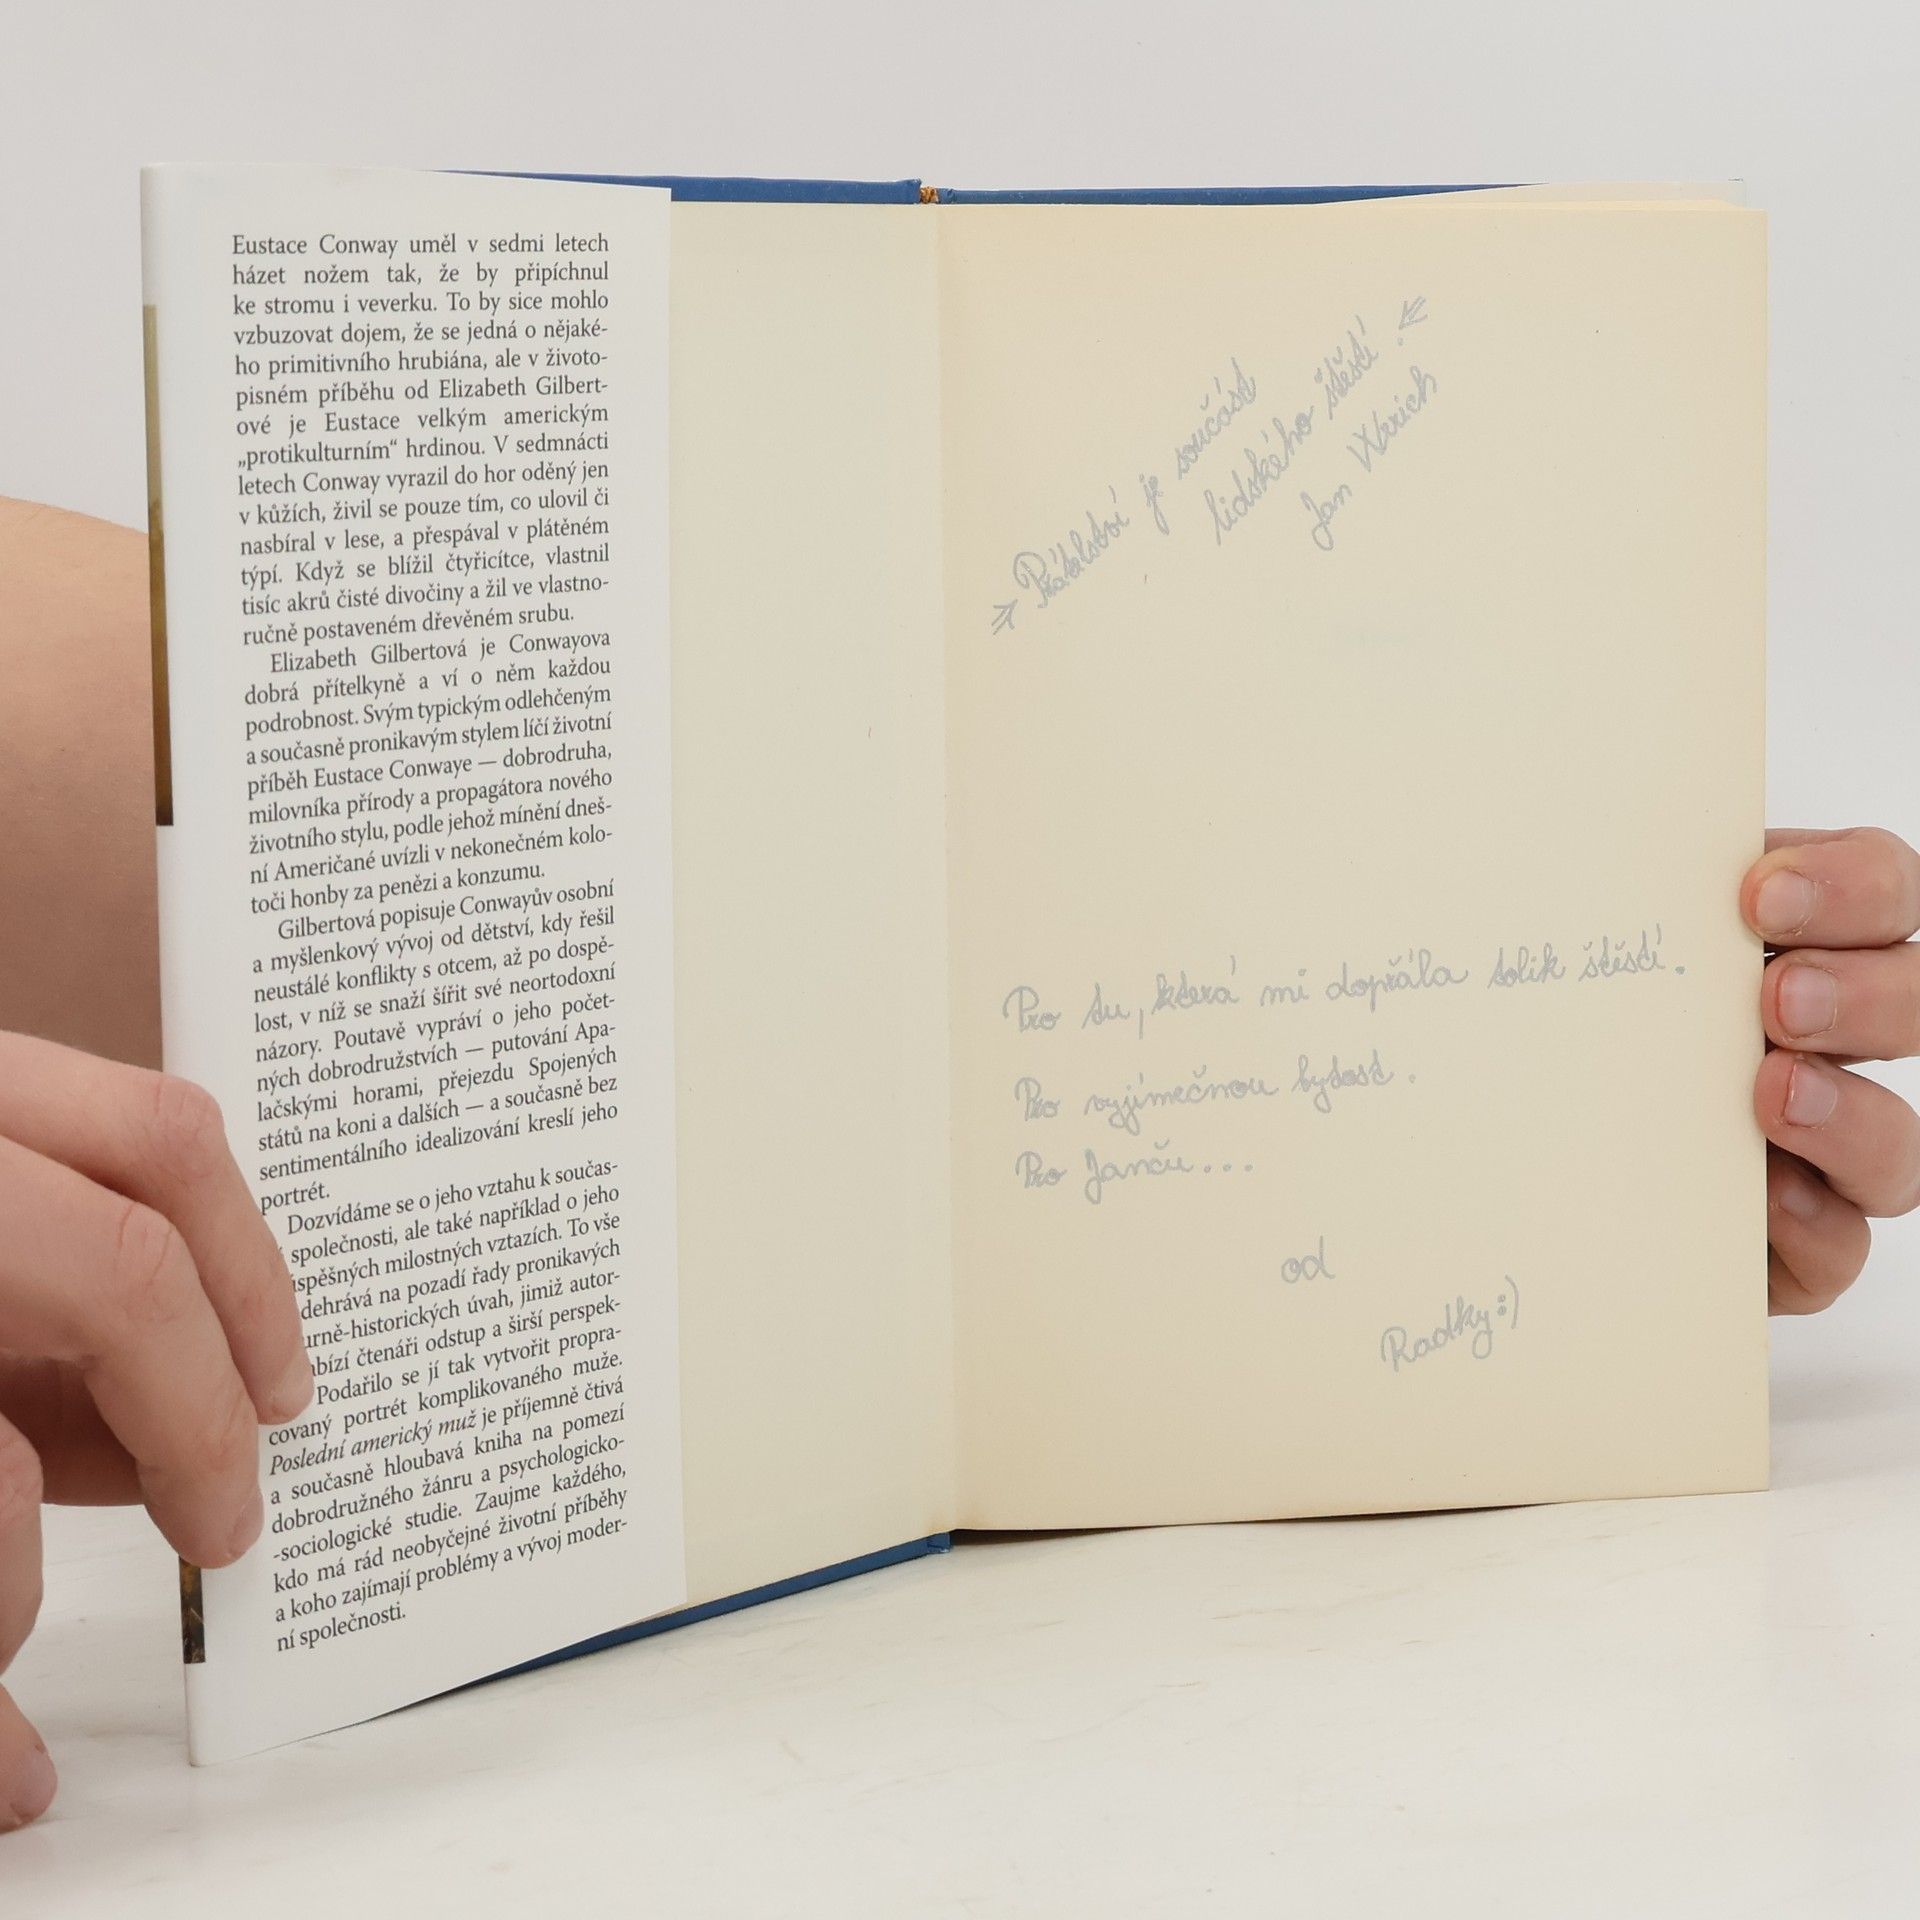 Eustace Conway uměl v sedmi letech
házet nožem tak, že by připíchnul
ke stromu i veverku. To by sice mohlo
vzbuzovat dojem, že se jedná o nějaké-
ho primitivního hrubiána, ale v životo-
pisném příběhu od Elizabeth Gilbert-
ové je Eustace velkým americkým
„protikulturním“ hrdinou. V sedmnácti
letech Conway vyrazil do hor oděný jen
v kůžích, živil se pouze tím, co ulovil či
nasbíral v lese, a přespával v plátěném
týpí. Když se blížil čtyřicítce, vlastnil
tisíc akrů čisté divočiny a žil ve vlastno-
ručně postaveném dřevěném srubu.
Elizabeth Gilbertová je Conwayova
dobrá přítelkyně a ví o něm každou
podrobnost. Svým typickým odlehčeným
a současně pronikavým stylem líčí životní
příběh Eustace Conwaye — dobrodruha,
milovníka přírody a propagátora nového
životního stylu, podle jehož mínění dneš-
ní Američané uvízli v nekonečném kolo-
toči honby za penězi a konzumu.
Gilbertová popisuje Conwayův osobní
a myšlenkový vývoj od dětství, kdy řešil
neustálé konflikty s otcem, až po dospě-
lost, v níž se snaží šířit své neortodoxní
názory. Poutavě vypráví o jeho počet-
ných dobrodružstvích — putování Apa-
lačskými horami, přejezdu Spojených
států na koni a dalších — a současně bez
sentimentálního idealizování kreslí jeho
portrét.
Dozvídáme se o jeho vztahu k součas-
společnosti, ale také například o jeho
úspěšných milostných vztazích. To vše
dehrává na pozadí řady pronikavých
urně-historických úvah, jimiž autor-
abízí čtenáři odstup a širší perspek-
Podařilo se jí tak vytvořit propra-
covaný portrét komplikovaného muže.
Poslední americký muž je příjemně čtivá
a současně hloubavá kniha na pomezí
dobrodružného žánru a psychologicko-
-sociologické studie. Zaujme každého,
kdo má rád neobyčejné životní příběhy
a koho zajímají problémy a vývoj moder-
ní společnosti.
Přátelství je součást
lidského štěstí.
Jan Werich
Pro tu, která mi dopřála tolik štěstí.
Pro vyjímečnou bytost.
Pro Janču...
od
Radky:)